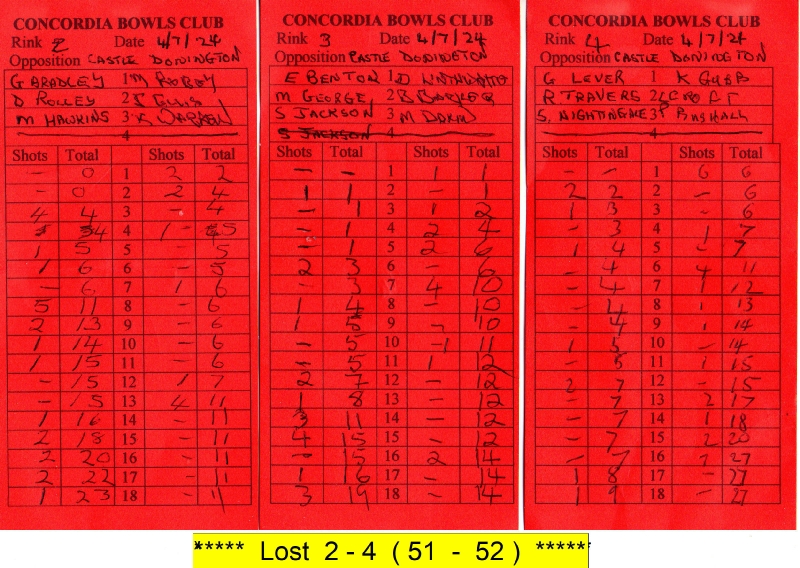 CONCORDIA BOWLS CLUB
Rink 2 Date 4/7/24
Opposition CASTLE DONINGTON
G BRADLEY 1 M
D ROLLEY 2
M HAWKINS 3 K
4
Shots Total Shots Total
- 0 1 2 2
- 0 2 2 4
4 4 3 - 4
4 4 5
1 5 5 - 5
1 6 6 - 5
- 6 7 1 6
5 11 8 - 6
2 13 9 - 6
1 14 10 - 6
1 15 11 - 6
- 15 12 1 7
- 15 13 4 11
1 16 14 - 11
2 18 15 - 11
2 20 16 - 11
2 22 17 - 11
1 23 18 - 11
CONCORDIA BOWLS CLUB
Rink 3 Date 4/7/24
Opposition CASTLE DONINGTON
E BENTON 1 D
M GEORGE 2 B BARKER
S JACKSON 3 M DAKIN
S JACKSON 4
Shots Total Shots Total
- - 1 1 1
1 1 2 - 1
- 1 3 1 2
- 1 4 2 4
- 1 5 2 6
2 3 6 - 6
- 3 7 4 10
1 4 8 - 10
1 5 9 - 10
- 5 10 1 11
- 5 11 1 12
2 7 12 - 12
1 8 13 - 12
3 11 14 - 12
4 15 15 - 12
- 15 16 2 14
1 16 17 - 14
3 19 18 - 14
CONCORDIA BOWLS CLUB
Rink 4 Date 4/7/24
Opposition CASTLE DONINGTON
G LEVER 1 K
R TRAVERS 2
S. NIGHTINGALE 3 P
4
Shots Total Shots Total
- - 1 6 6
2 2 2 - 6
1 3 3 - 6
- 3 4 1 7
1 4 5 - 7
- 4 6 4 11
- 4 7 1 12
- 4 8 1 13
- 4 9 1 14
1 5 10 - 14
- 5 11 1 15
2 7 12 - 15
- 7 13 2 17
- 7 14 1 18
- 7 15 2 20
- 7 16 7 27
1 8 17 - 27
1 9 18 - 27
***** Lost 2 - 4 ( 51 - 52 ) *****